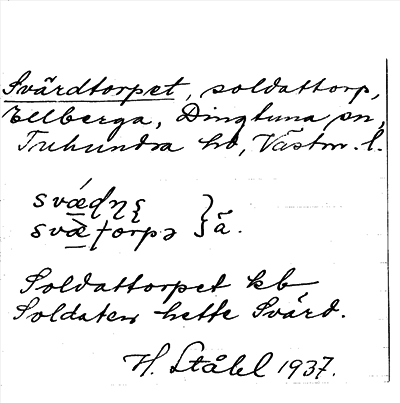 Svärdtorpet, soldattorp,
Ellberga, Dingtuna sn,
Tuhundra hd, Västm. l.
svǽɖɳ
svæ̀ʈorpə } ä.
Soldattorpet kb
Soldaten hette Svärd.
H. Ståhl 1937.